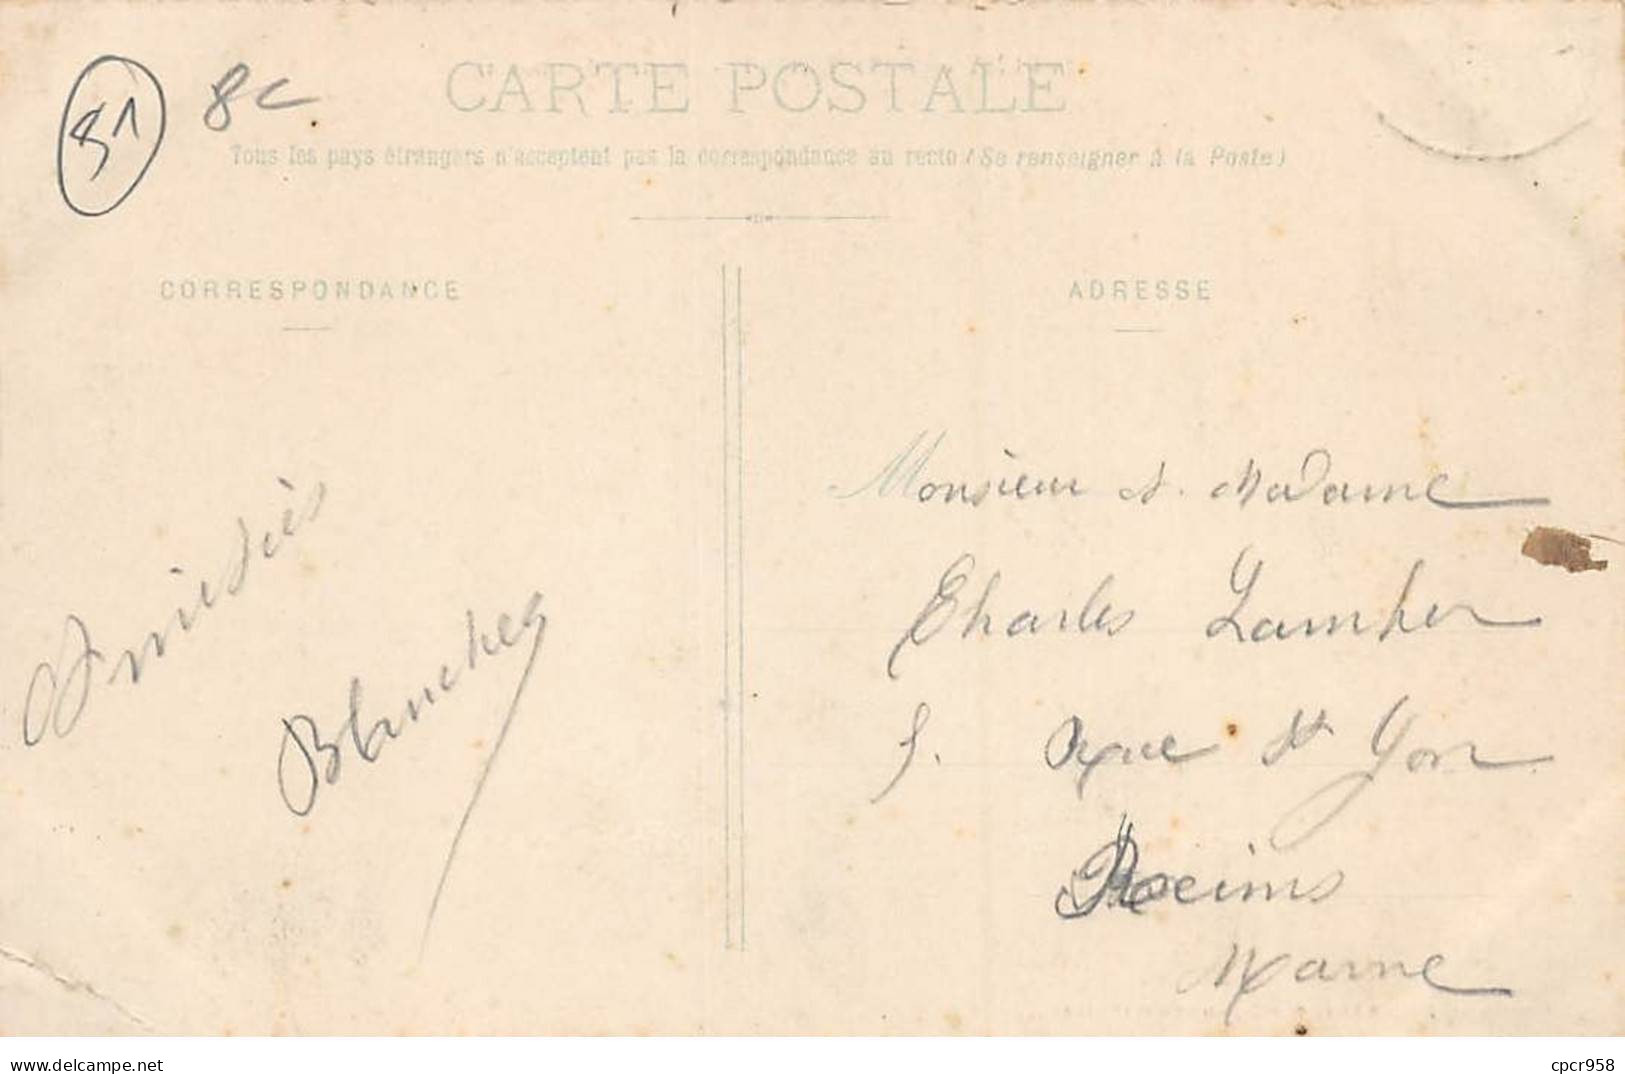 81 8c
CARTE POSTALE
Tous les pays étrangers n'acceptent pas la correspondance au recto (Se renseigner à la Poste)
CORRESPONDANCE
ADRESSE
Amitiés
Blanches
Monsieur et Madame
Charles Lamber
5. Rue St Yon
Reims
Marne
www.delcampe.net
cpcr958